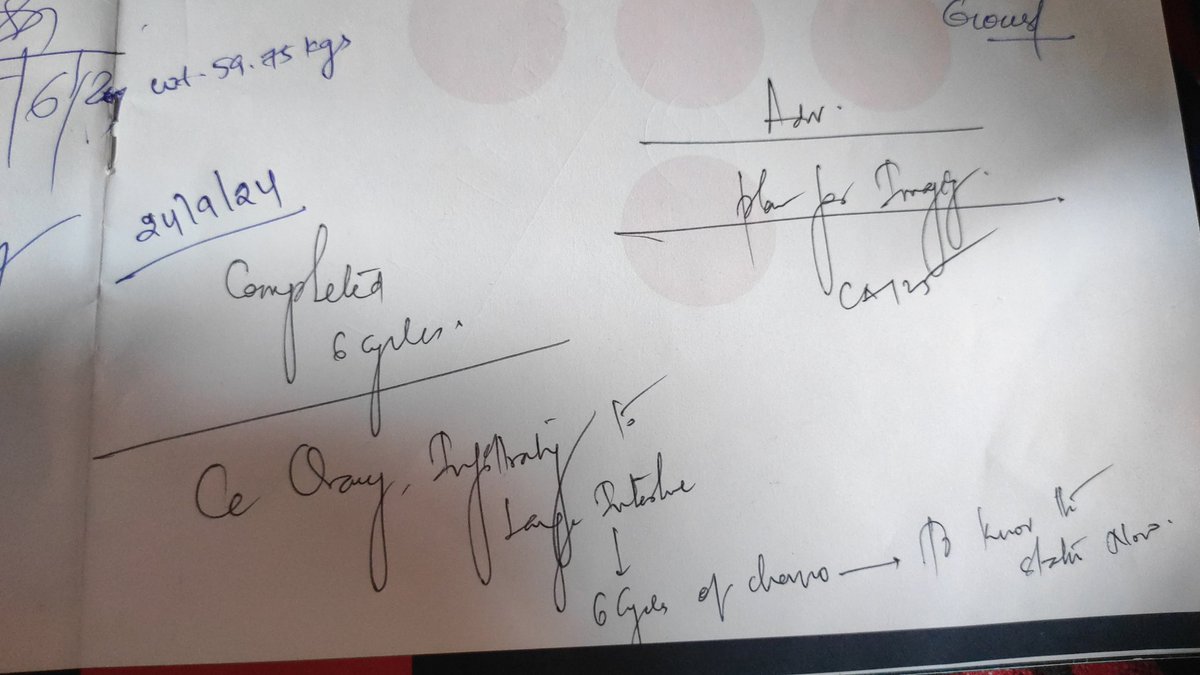 6/2
wt. 59.75 kgs
24/9/24
Completed
6 cycles.
Ca Ovary, Infiltrating to
Large Intestine
↓
6 Cycles of chemo → To know the
status Now.
Adv.
plan for Imaging.
CA125